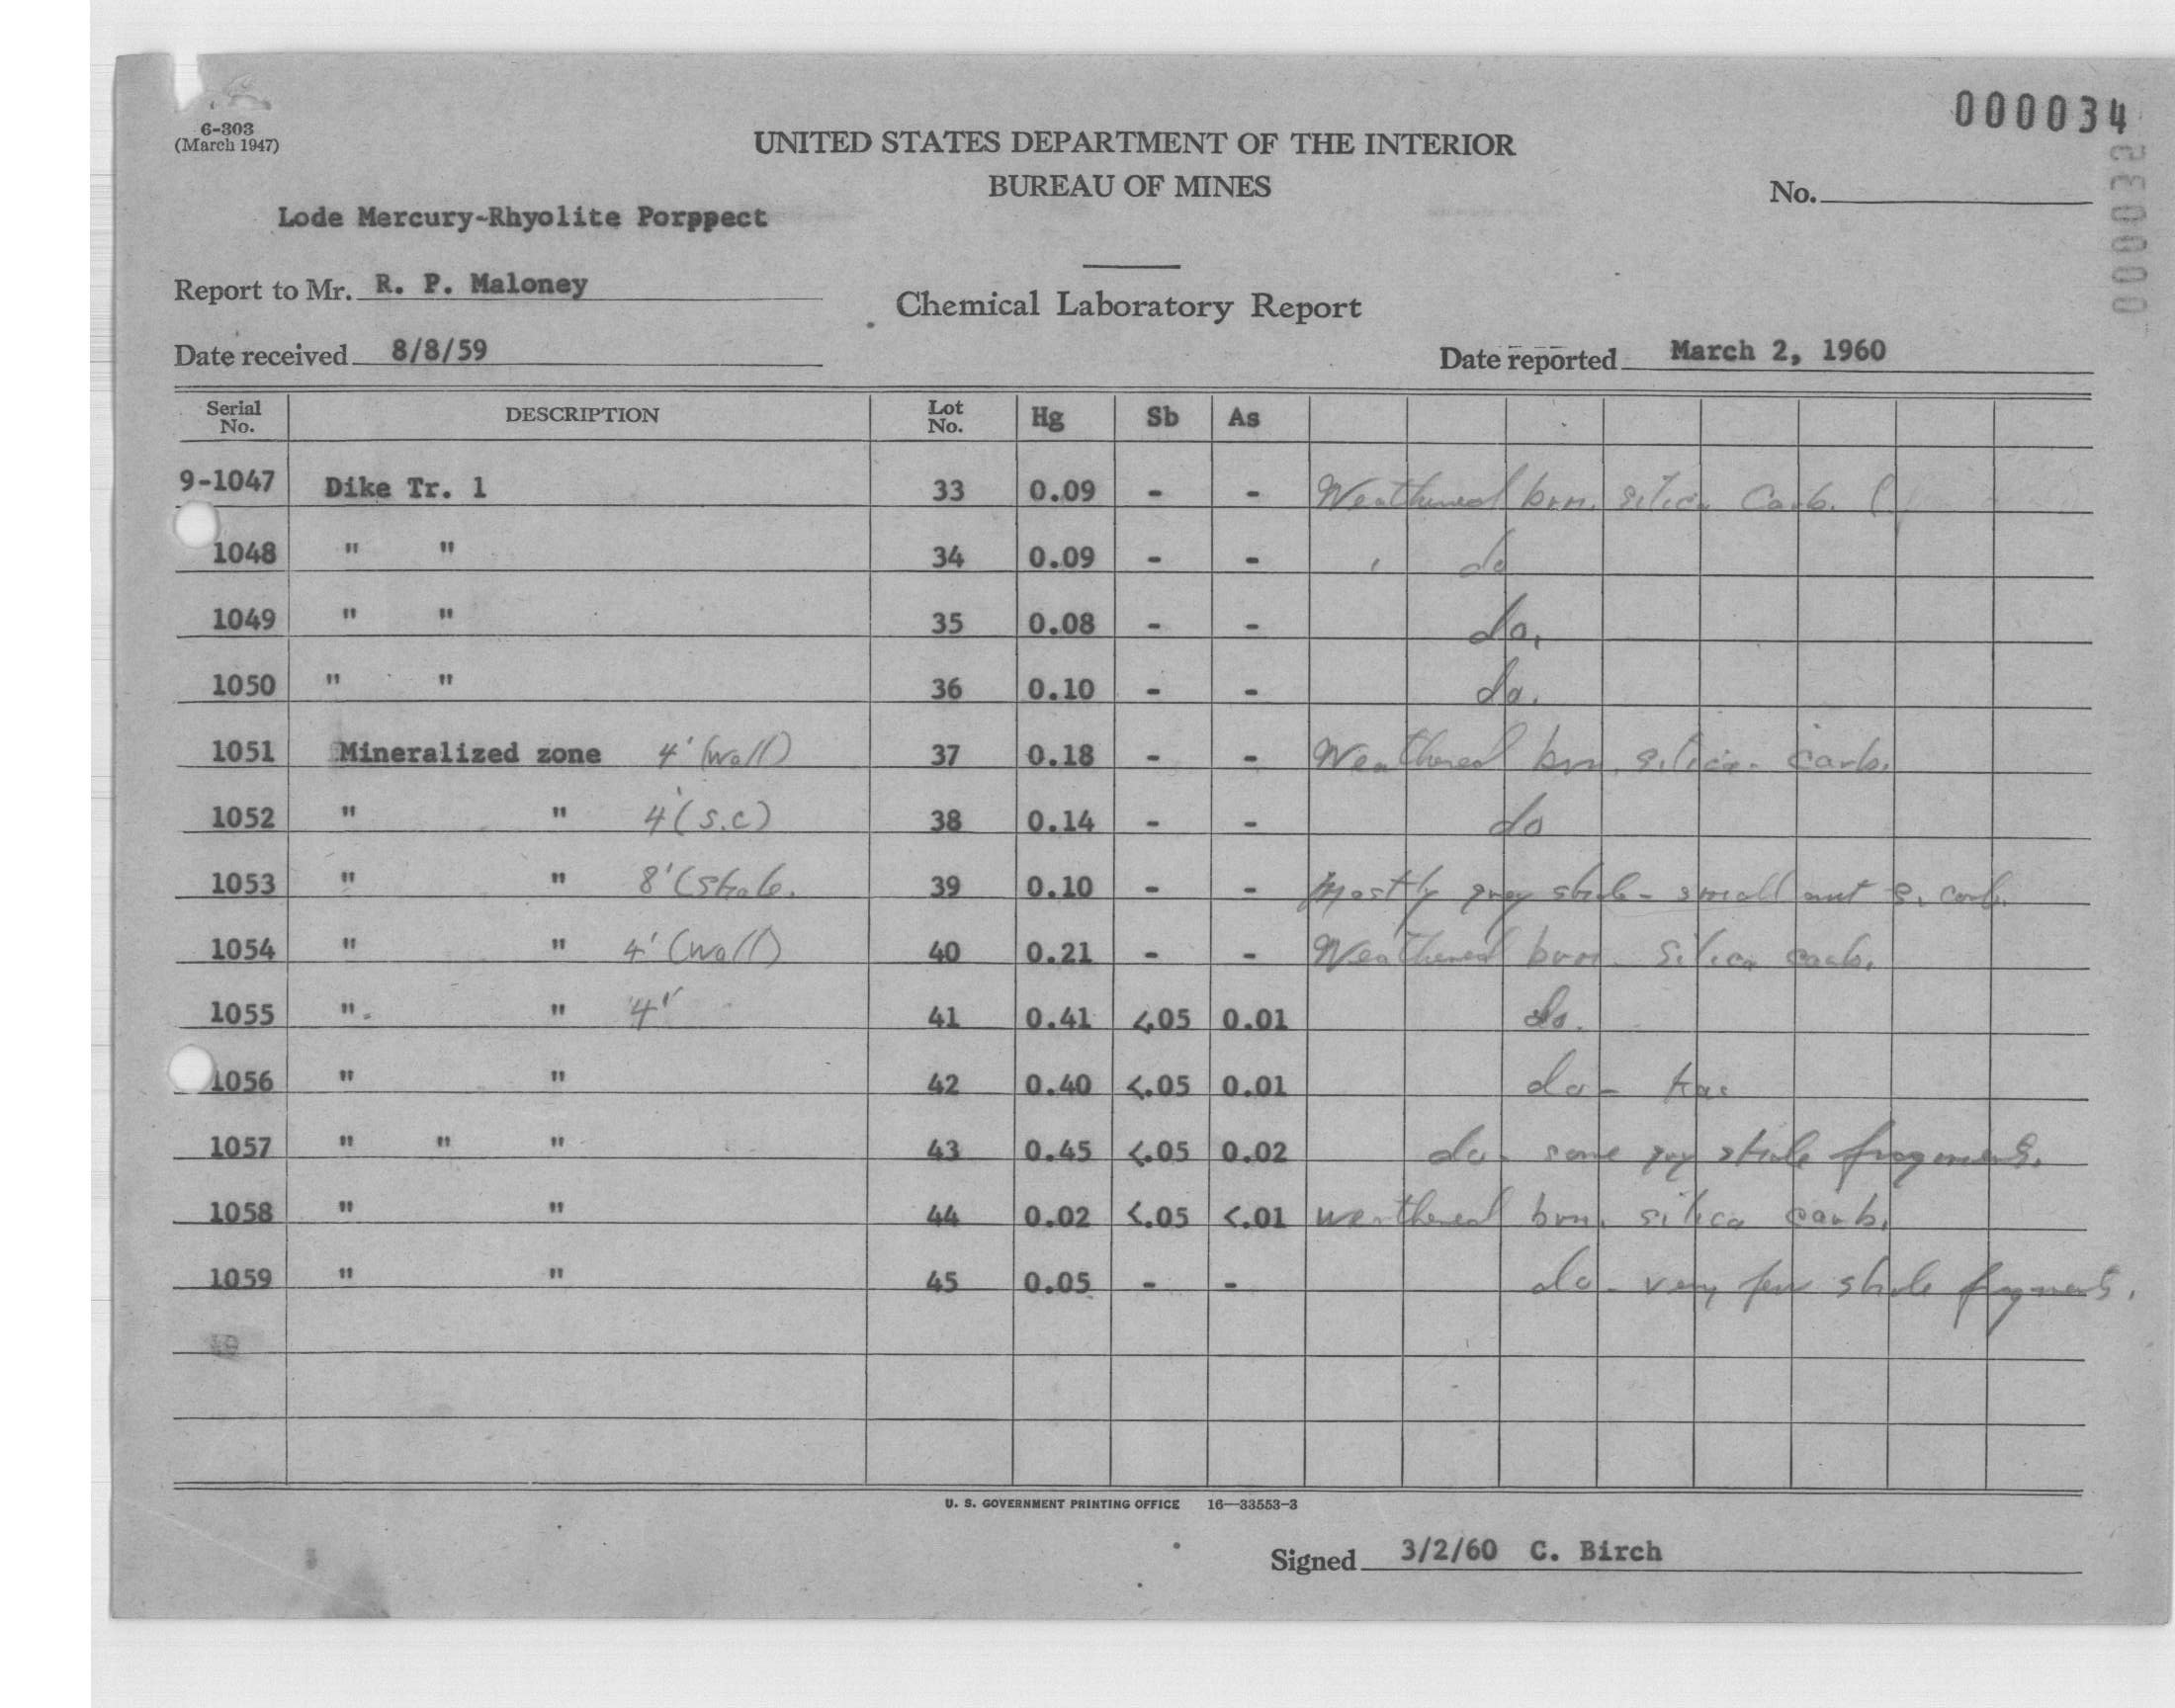 000034
6-303
(March 1947)
UNITED STATES DEPARTMENT OF THE INTERIOR
BUREAU OF MINES
No.
000032
Lode Mercury-Rhyolite Porppect
Report to Mr. R. P. Maloney
Chemical Laboratory Report
Date received 8/8/59
Date reported March 2, 1960
Serial No. DESCRIPTION Lot No. Hg Sb As
9-1047 Dike Tr. 1 33 0.09 - - Weathered brn. silica Carb.
1048 " " 34 0.09 - - do
1049 " " 35 0.08 - - do.
1050 " " 36 0.10 - - do.
1051 Mineralized zone 4' (wall) 37 0.18 - - Weathered brn. silica- carb.
1052 " " 4' (s.c) 38 0.14 - - do
1053 " " 8' (shale. 39 0.10 - - Mostly gray shale - small amt s. carb.
1054 " " 4' (wall) 40 0.21 - - Weathered brn. silica carb.
1055 " " 4' 41 0.41 <.05 0.01 do.
1056 " " 42 0.40 <.05 0.01 do -
1057 " " " 43 0.45 <.05 0.02 do - some gray shale fragments.
1058 " " 44 0.02 <.05 <.01 weathered brn. silica carb.
1059 " " 45 0.05 - - do - very few shale fragments.
U. S. GOVERNMENT PRINTING OFFICE 16—33553-3
Signed 3/2/60 C. Birch